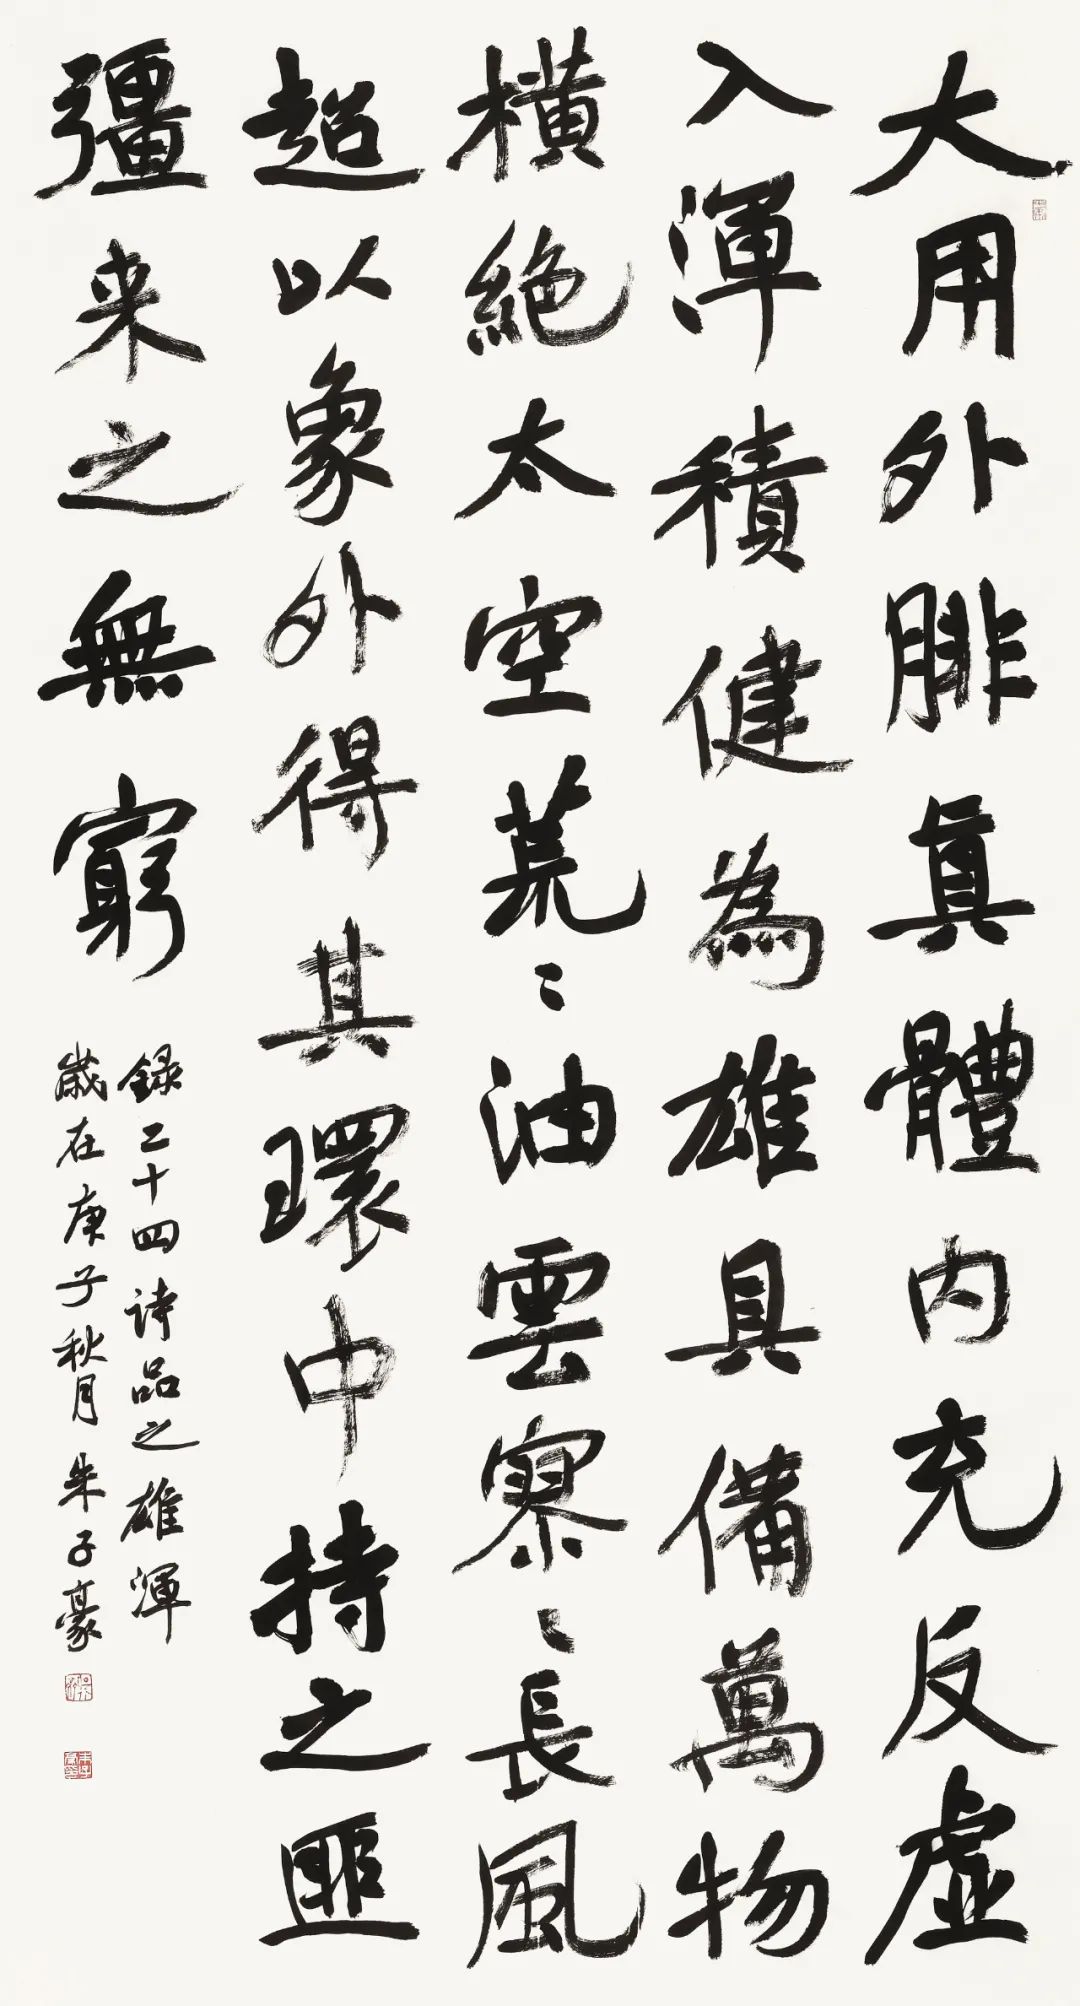 大用外腓真體内充反虛
入渾積健為雄具備萬物
橫絕太空荒〻油雲寥〻長風
超以象外得其環中持之匪
彊来之無窮
錄二十四诗品之雄渾
歲在庚子秋月朱子豪